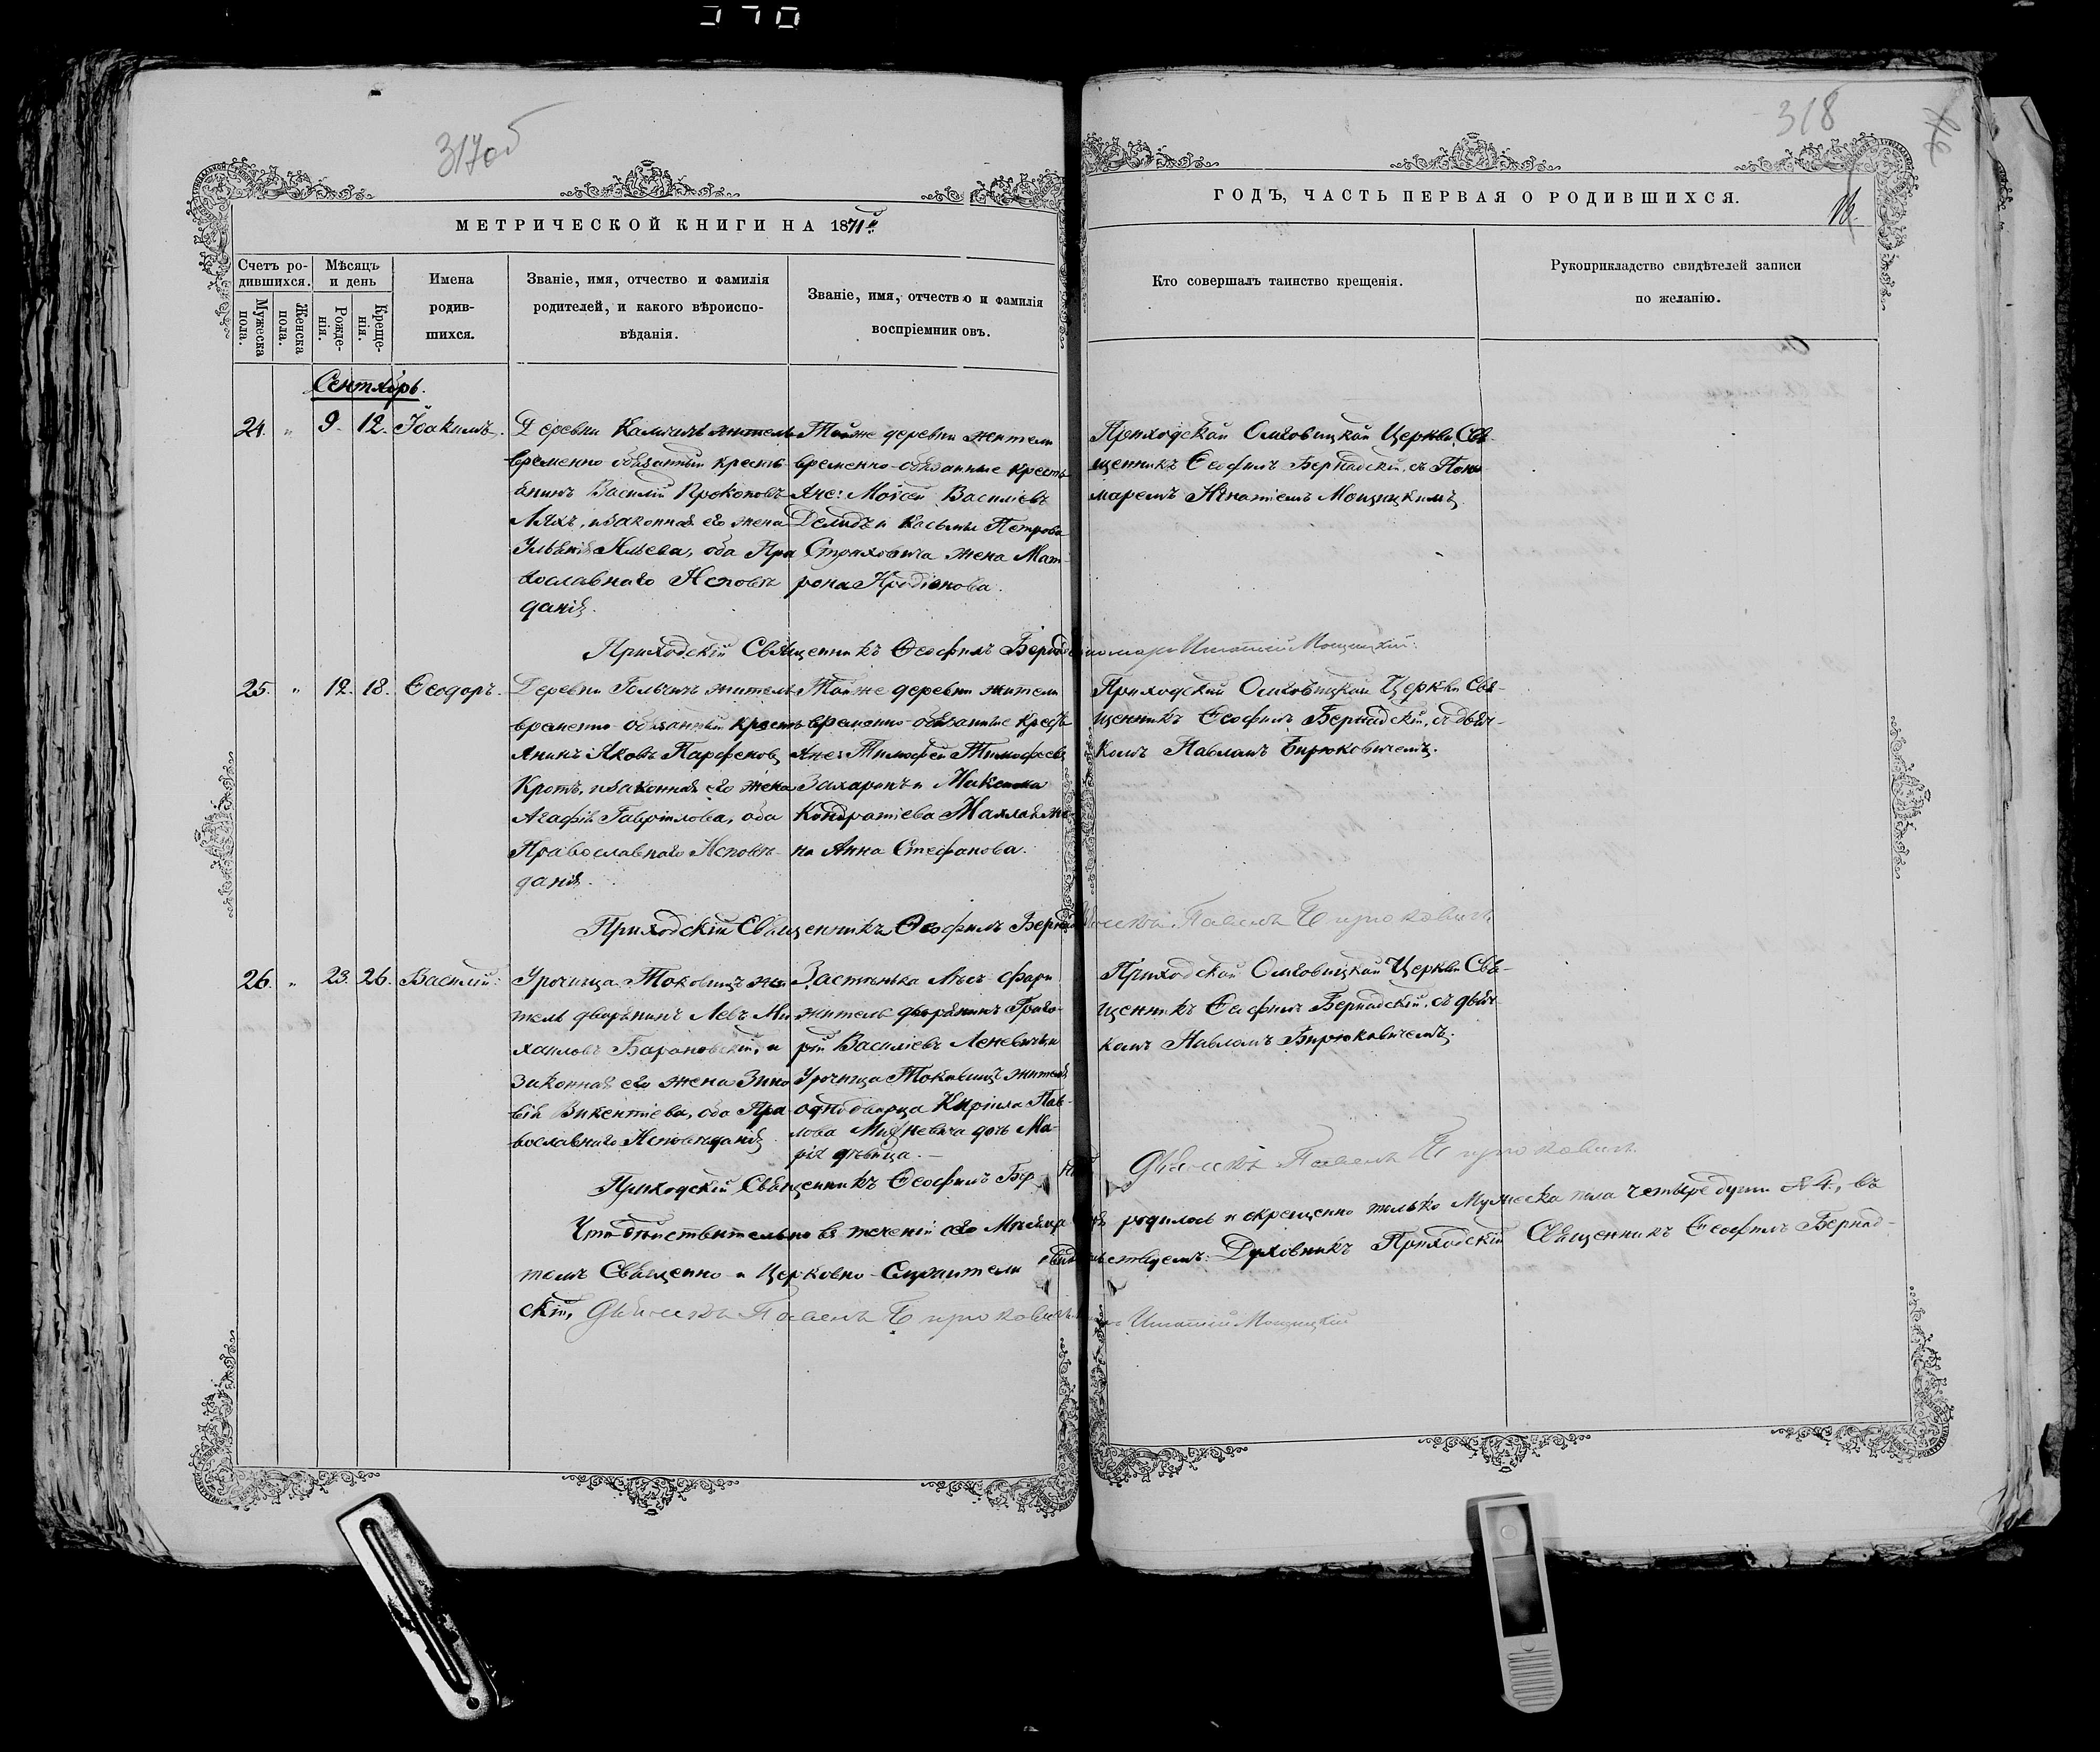 370
317об
318
МЕТРИЧЕСКОЙ КНИГИ НА 1871й
ГОДЪ, ЧАСТЬ ПЕРВАЯ О РОДИВШИХСЯ.
Счетъ ро-
дившихся.
Мужеска
пола.
Женска
пола.
Мѣсяцъ
и день
Рожде-
нія.
Креще-
нія.
Имена
родив-
шихся.
Званіе, имя, отчество и фамилія
родителей, и какого вѣроиспо-
вѣданія.
Званіе, имя, отчество и фамилія
воспріемник овъ.
Кто совершалъ таинство крещенія.
Рукоприкладство свидѣтелей записи
по желанію.
Сентябрь.
24. " 9. 12. Іоакимъ.
Деревни житель
временно обязанный кресть-
янинъ Василій Прокоповъ
Ляхъ, и законная его жена
Ильева, оба Пра
вославнаго Исповѣ
данія.
Тойже деревни жители
временно-обязанные кресть
яне: Моісей Василіевъ
и Касьяна Петрова
Стриховича жена Мат-
рона Иродіонова.
Приходской Церкви Свя-
щенникъ Ѳеофилъ Бернадскій, съ Поно
маремъ Игнатіемъ Мощицкимъ.
Приходскій Священникъ Ѳеофилъ Игнатій Мощицкій.
25. " 12. 18. Ѳеодоръ.
Деревни житель
временно-обязанный кресть
янинъ Яковъ Парфеновъ
Кротъ, и законная его жена
Агафія Гавріилова, оба
Православнаго Исповѣ-
данія.
Тойже деревни жители
временно-обязанные кресть
яне: Тимофей Тимофеевъ
Захаронъ и Максима
Кондратіева же-
на Анна Стефанова.
Приходской Церкви Свя-
щенникъ Ѳеофилъ Бернадскій, съ дьяч-
комъ Павломъ Бирюковичемъ.
Приходскій Священникъ Ѳеофилъ Павелъ Бирюковичъ
26. " 23. 26. Василій.
Урочища жи
тель дворянинъ Левъ Ми
хаиловъ Барановскій, и
законная его жена Зино
вія Викентіева, оба Пра
вославнаго Исповѣданія.
Застѣнка
житель дворянинъ Григо-
рій Василіевъ Леневичъ и
Урочища жителя
однодворца Кирилла Пав-
лова Михневича дочь Ма-
рія дѣвица.
Приходской Церкви Свя-
щенникъ Ѳеофилъ Бернадскій, съ дьяч-
комъ Павломъ Бирюковичемъ.
Приходскій Священникъ Ѳеофилъ Дьячекъ Павелъ Бирюковичъ
Что дѣйствительно въ теченіи сего Мѣсяца родилось и окрещенно только Мужеска пола четыре души № 4., въ
томъ Священно и Церковно-Служители свидѣтельствуемъ: Духовникъ Приходскій Священникъ Ѳеофилъ Бернад-
скій, Дьячекъ Павелъ Бирюковичъ Игнатій Мощицкій